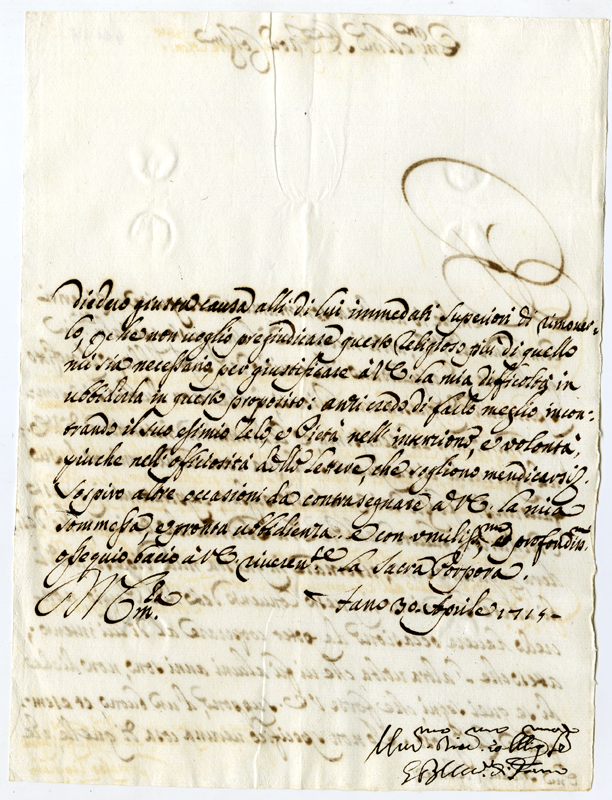 diedero giusta causa alli di lui immediati Superiori di rimover=
lo, che non voglio pregiudicare questo Religioso più di quello
mi sia necessario per giustificare à V.E. la mia difficoltà in
ubbidirla in questo proposito: anzi credo di farlo meglio incon=
trando il suo esimio Zelo, e Pietà nell'intenzione, e volontà,
piuche nell'officiosità delle lettere, che sogliono mendicarsi.
Sospiro altre occasioni da contrasegnare à V.E. la mia
sommessa, e pronta ubbidienza. e con umiliss.mo e profondiss.mo
ossequio bacio à V.E. riveren.te la Sacra Porpora.
Fano 30. Aprile 1715